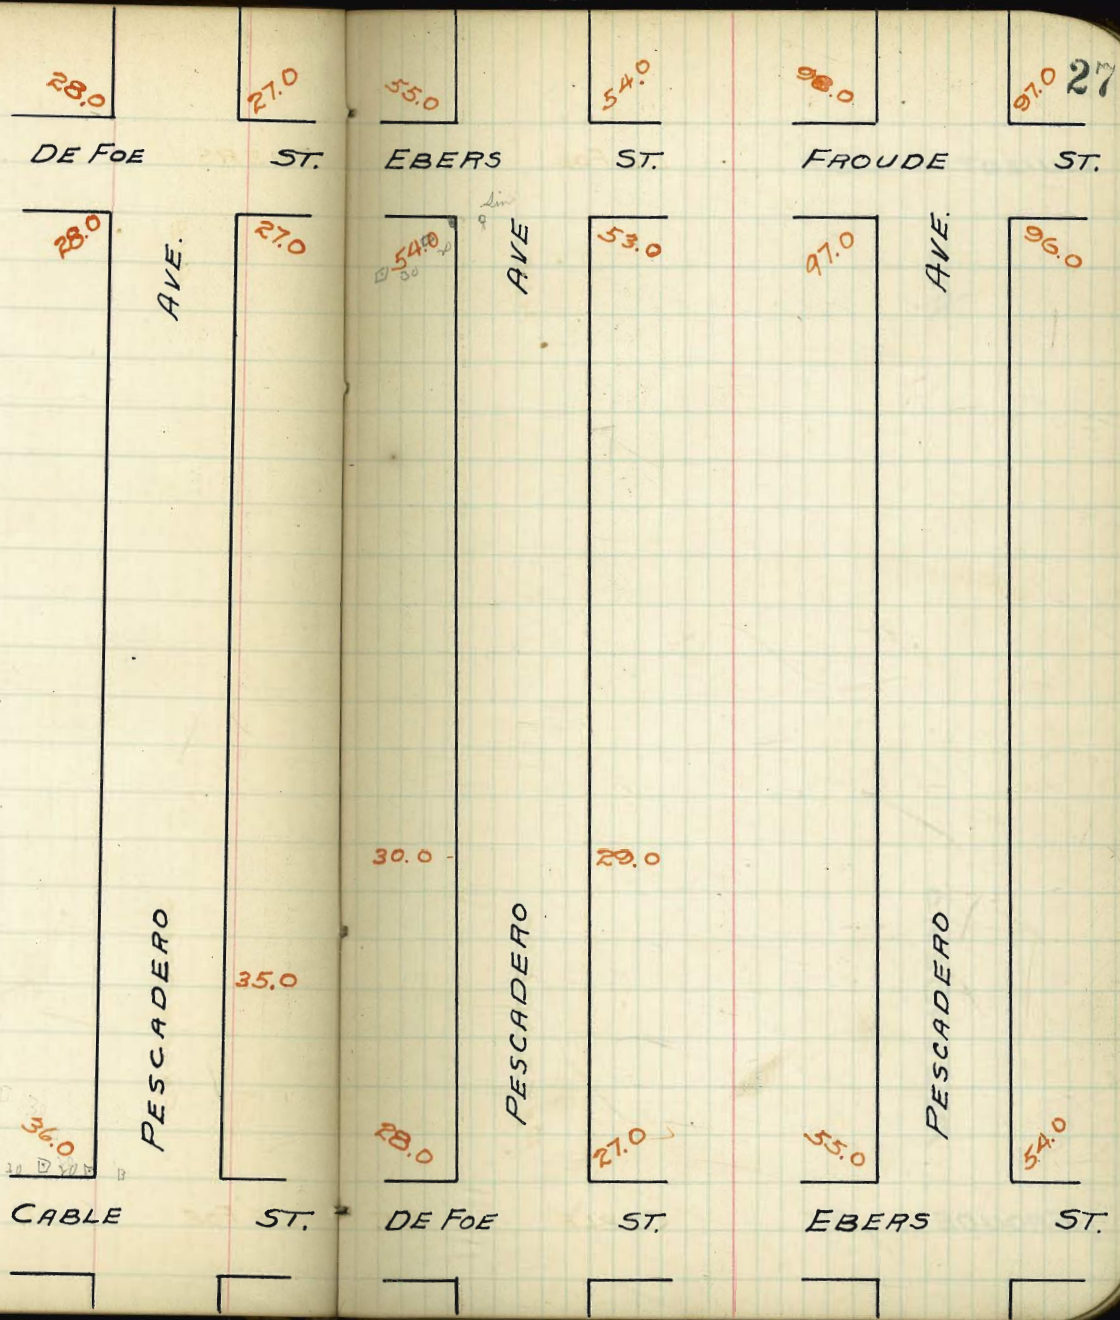 27
28.0 27.0 55.0 54.0 98.0 97.0
DE FOE ST. EBERS ST. FROUDE ST.
28.0 27.0 54.0 53.0 97.0 96.0
AVE. AVE AVE.
30
30.0 29.0
35.0
PESCADERO PESCADERO PESCADERO
36.0 28.0 27.0 55.0 54.0
CABLE ST. DE FOE ST. EBERS ST.